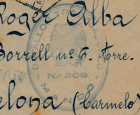 Roger Alba
Borrell nº 5. Torre.
elona (Carmelo)